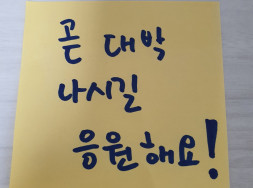 곧 대박
나시길
응원해요!